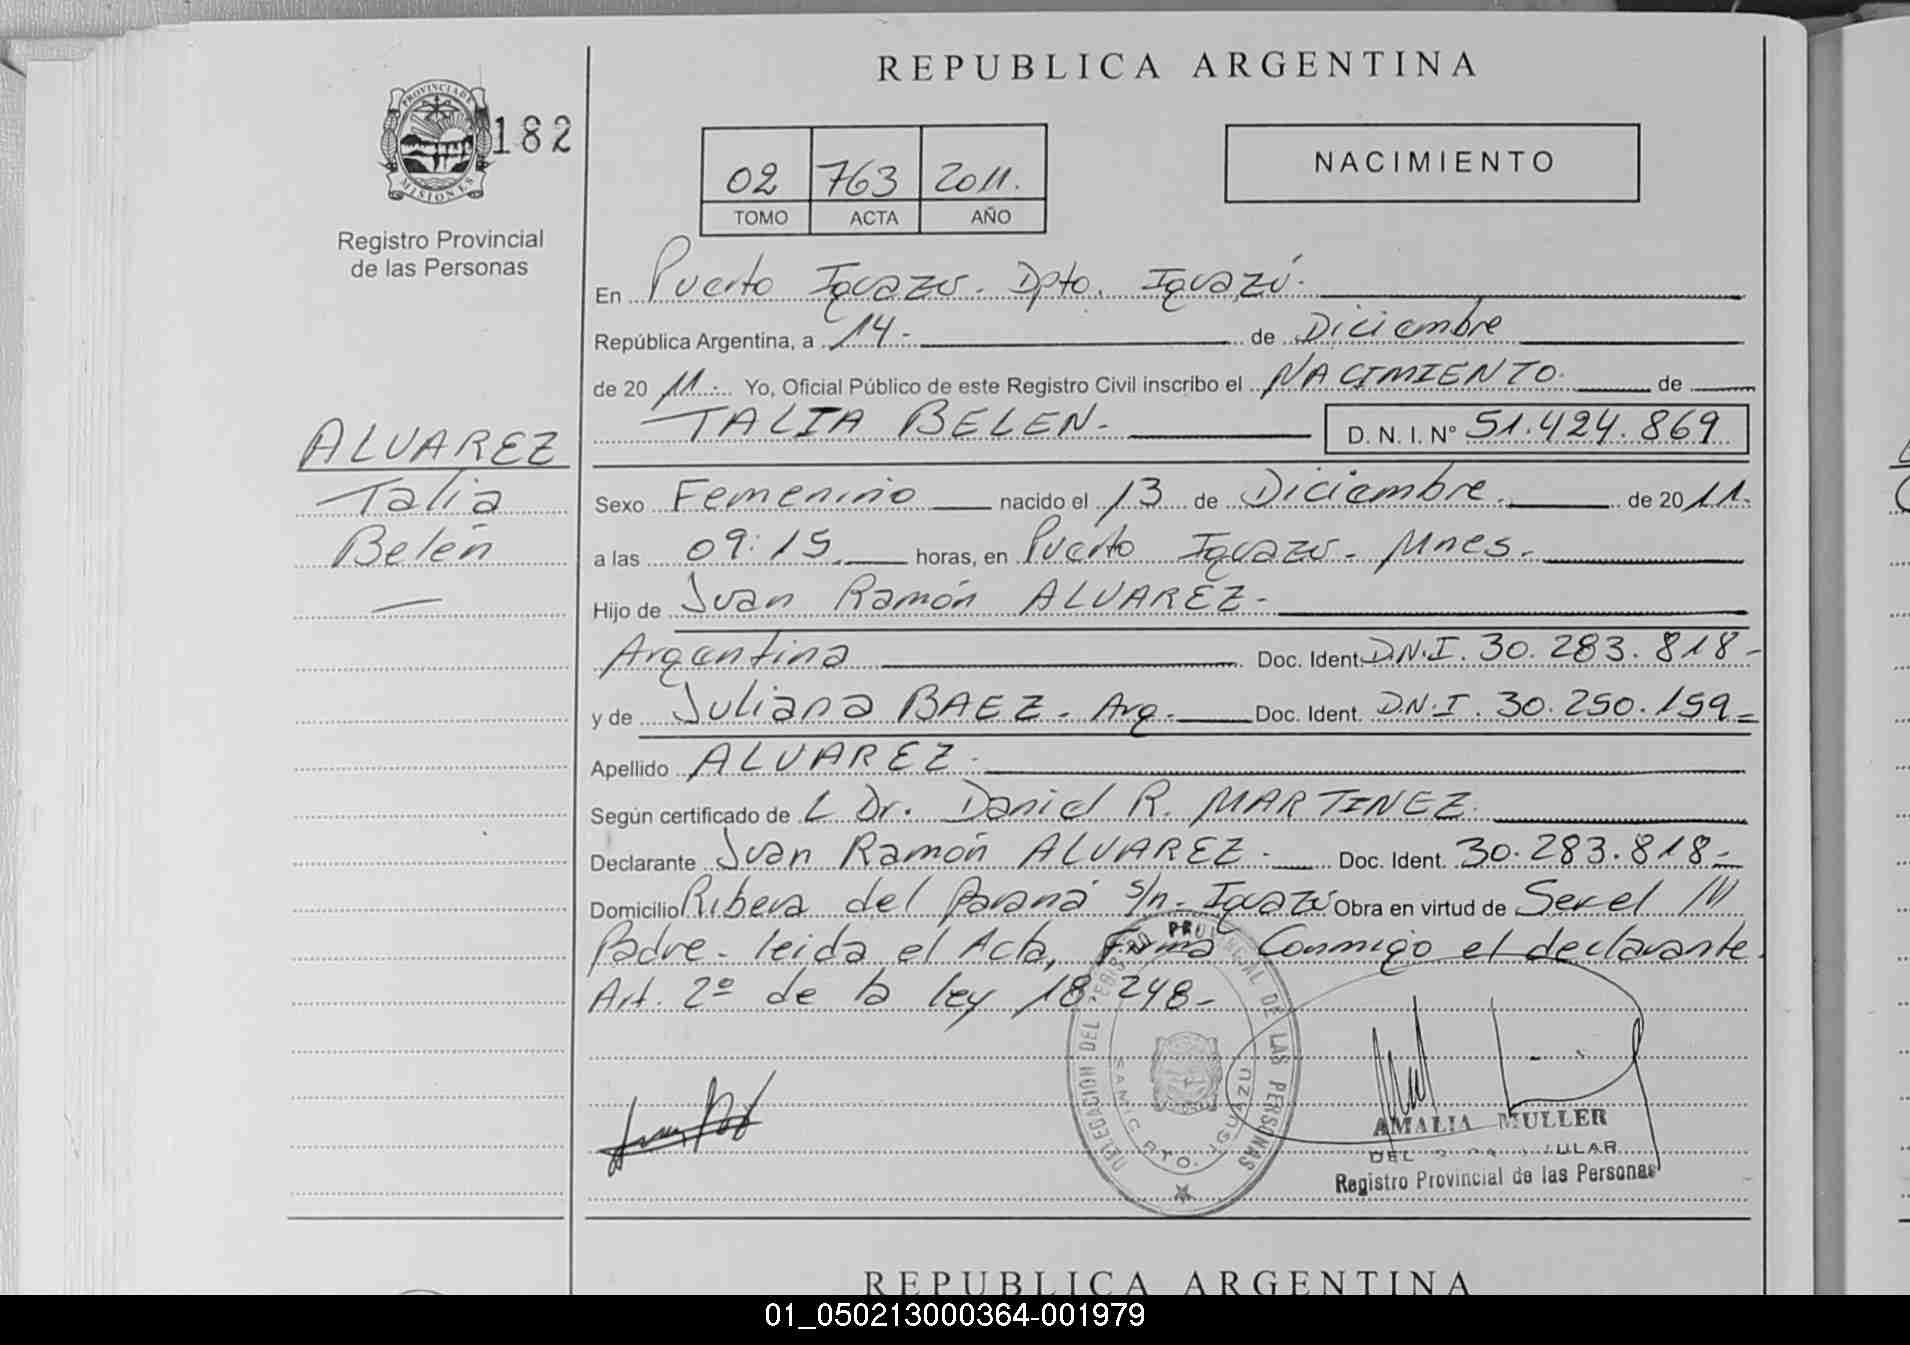 REPUBLICA ARGENTINA
PROVINCIA DE
MISIONES
182
Registro Provincial
de las Personas
02 763 2011.
TOMO ACTA AÑO
NACIMIENTO
En Puerto Iguazú. Dpto. Iguazú.
República Argentina, a 14- de Diciembre
de 20 11. Yo, Oficial Público de este Registro Civil inscribo el NACIMIENTO. de
TALIA BELEN. D. N. I. Nº 51.424.869
ALVAREZ
Talia
Belén
Sexo Femenino nacido el 13 de Diciembre. de 20 11.
a las 09:15. horas, en Puerto Iguazú. Mnes.
Hijo de Juan Ramón ALVAREZ-
Argentina Doc. Ident. D.N.I. 30.283.818-
y de Juliana BAEZ. Arg. Doc. Ident. D.N.I. 30.250.159-
Apellido ALVAREZ.
Según certificado de L Dr. Daniel R. MARTINEZ.
Declarante Juan Ramón ALVAREZ. Doc. Ident. 30.283.818-
Domicilio Ribera del Paraná s/n- Iguazú Obra en virtud de Ser el
Padre- leida el Acta, Firma Conmigo el declarante.
Art. 2º de la ley 18.248-
DELEGACION DEL REGISTRO PROVINCIAL DE LAS PERSONAS
PTO. IGUAZU
AMALIA MULLER
Registro Provincial de las Personas
REPUBLICA ARGENTINA
01_050213000364-001979